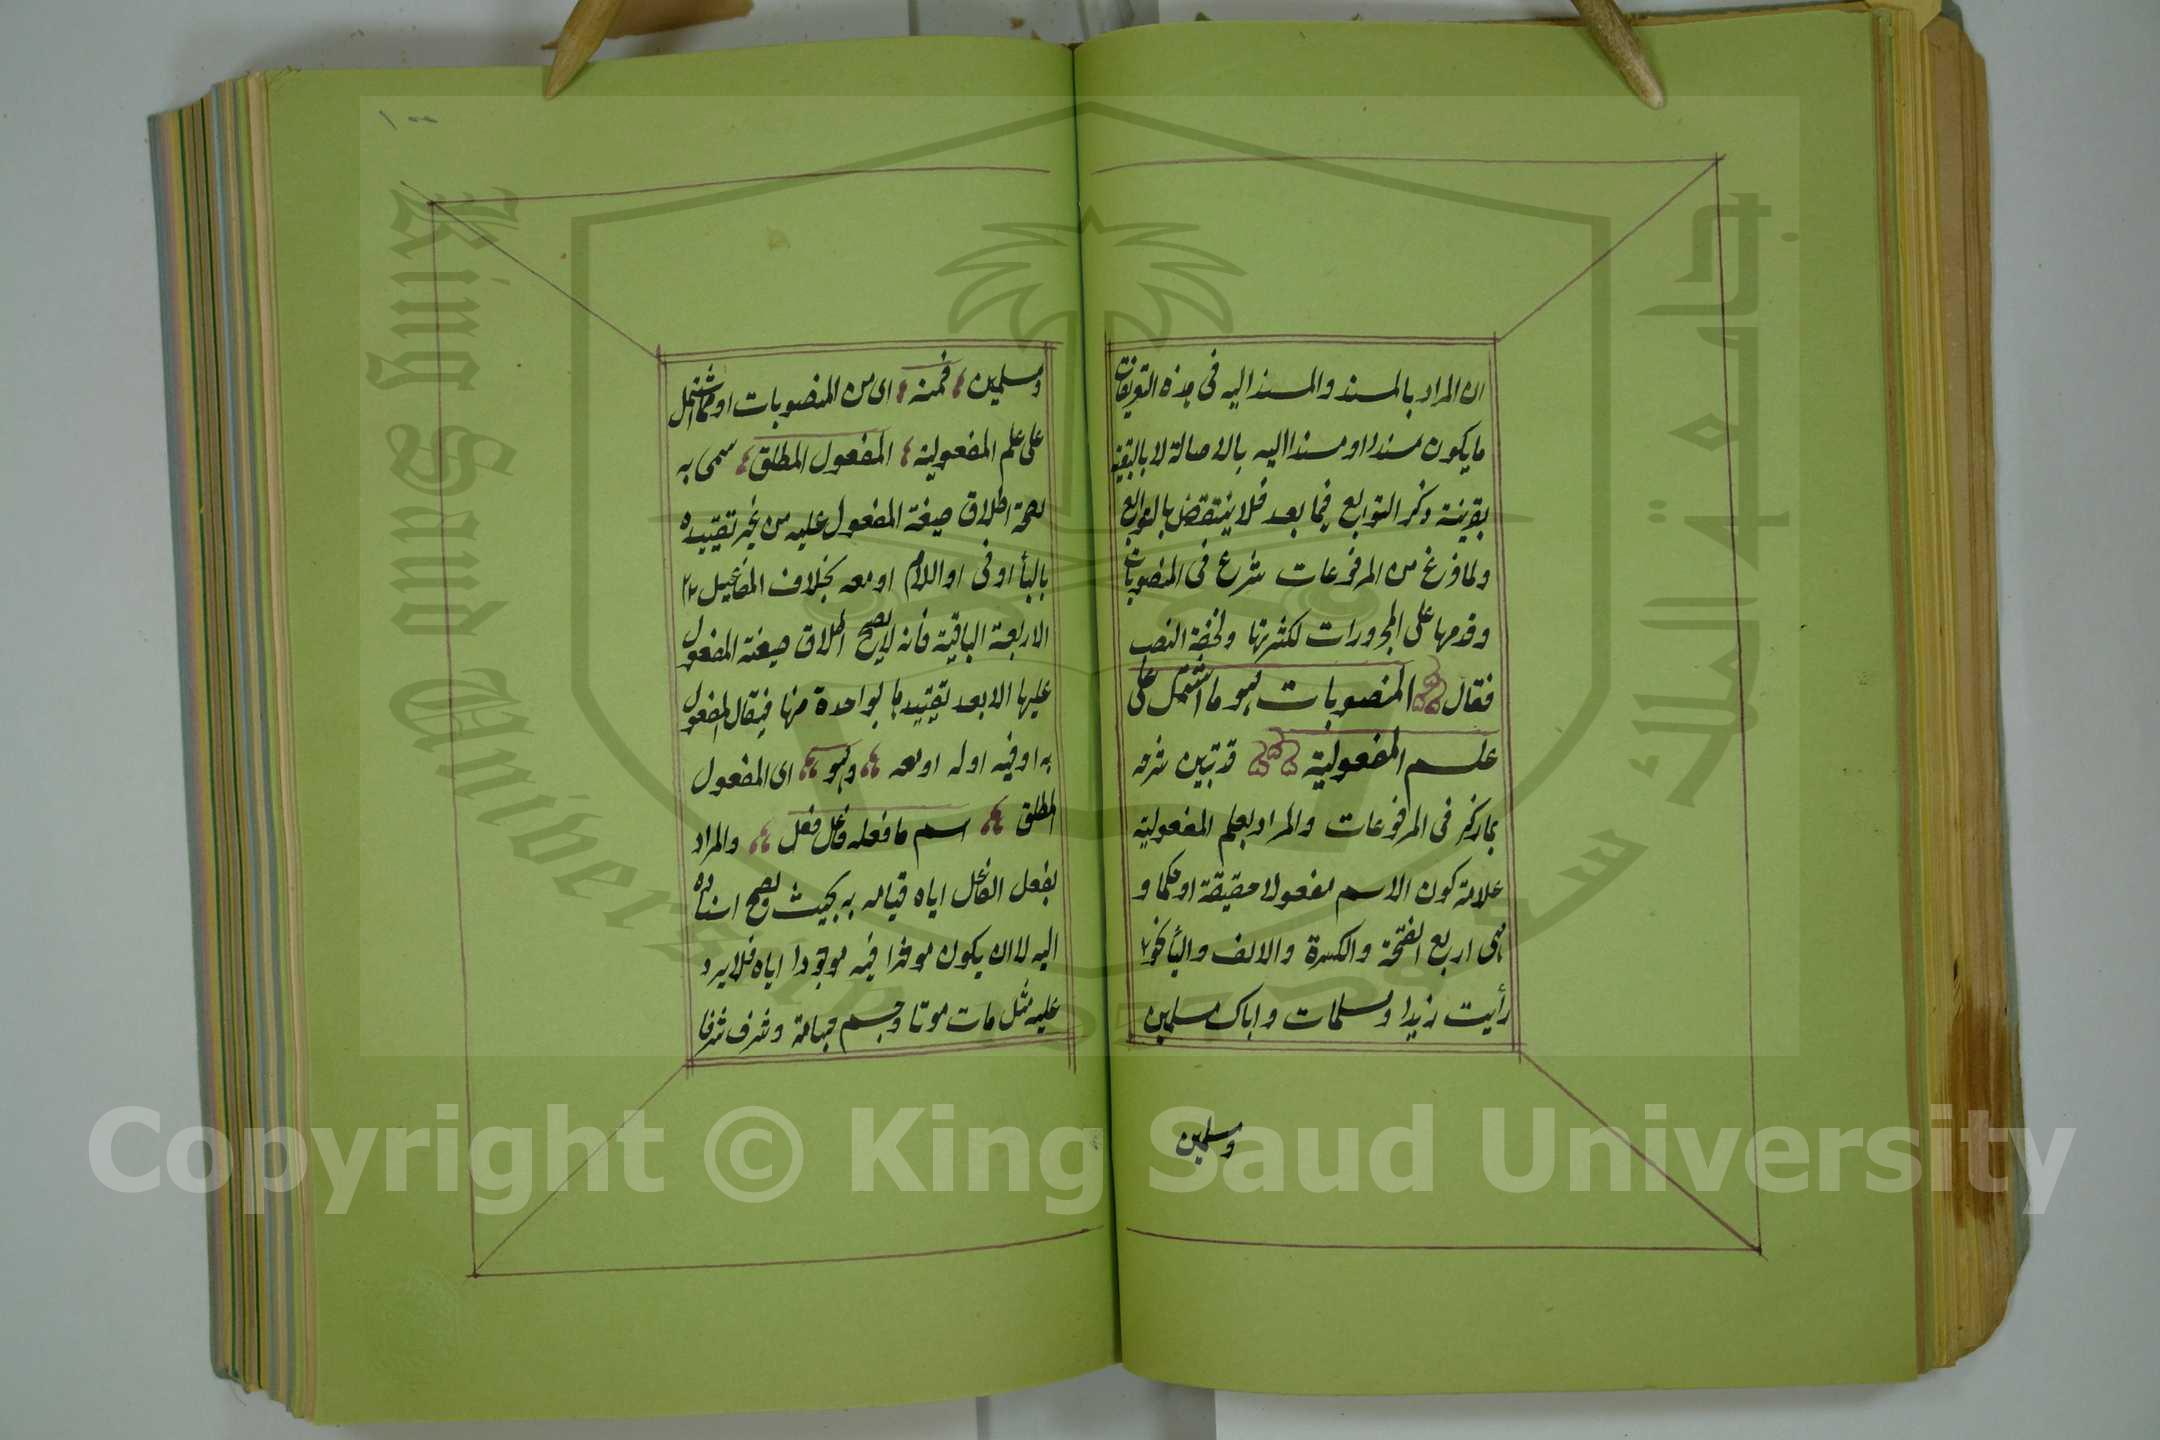 ان المراد بالمسند والمسند اليه فى هذه التعريفات
ما يكون مسندا او مسندا اليه بالاصالة لا بالتبعية
بقرينة ذكر التوابع فيما بعد فلا ينتقض بالتوابع
ولما فرغ من المرفوعات شرع فى المنصوبات
وقدمها على المجرورات لكثرتها ولخفة النصب
فقال المنصوبات هو ما اشتمل على
علم المفعولية قد تبين شرحه
بما ذكر فى المرفوعات والمراد بعلم المفعولية
علامة كون الاسم مفعولا حقيقة او حكما و
هى اربع الفتحة والكسرة والالف والياء نحو
رأيت زيدا ومسلمات واباك مسلمين
ومسلمين
١٠٠
ومسلمين فمنه اى من المنصوبات او مما اشتمل
على علم المفعولية المفعول المطلق سمى به
لصحة اطلاق صيغة المفعول عليه من غير تقييده
بالبأ او فى او اللام او معه بخلاف المفاعيل
الاربعة الباقية فأنه لا يصح اطلاق صيغة المفعول
عليها الا بعد تقييدها بواحدة منها فيقال المفعول
به او فيه او له او معه وهو اى المفعول
المطلق اسم ما فعله فاعل فعل والمراد
بفعل الفاعل اياه قيامه به بحيث يصح اسناده
اليه لا ان يكون مؤثرا فيه موجودا اياه فلا يرد
عليه مثل مات موتا وجسم جسامة وشرف شرفا
King Saud University
Copyright © King Saud University